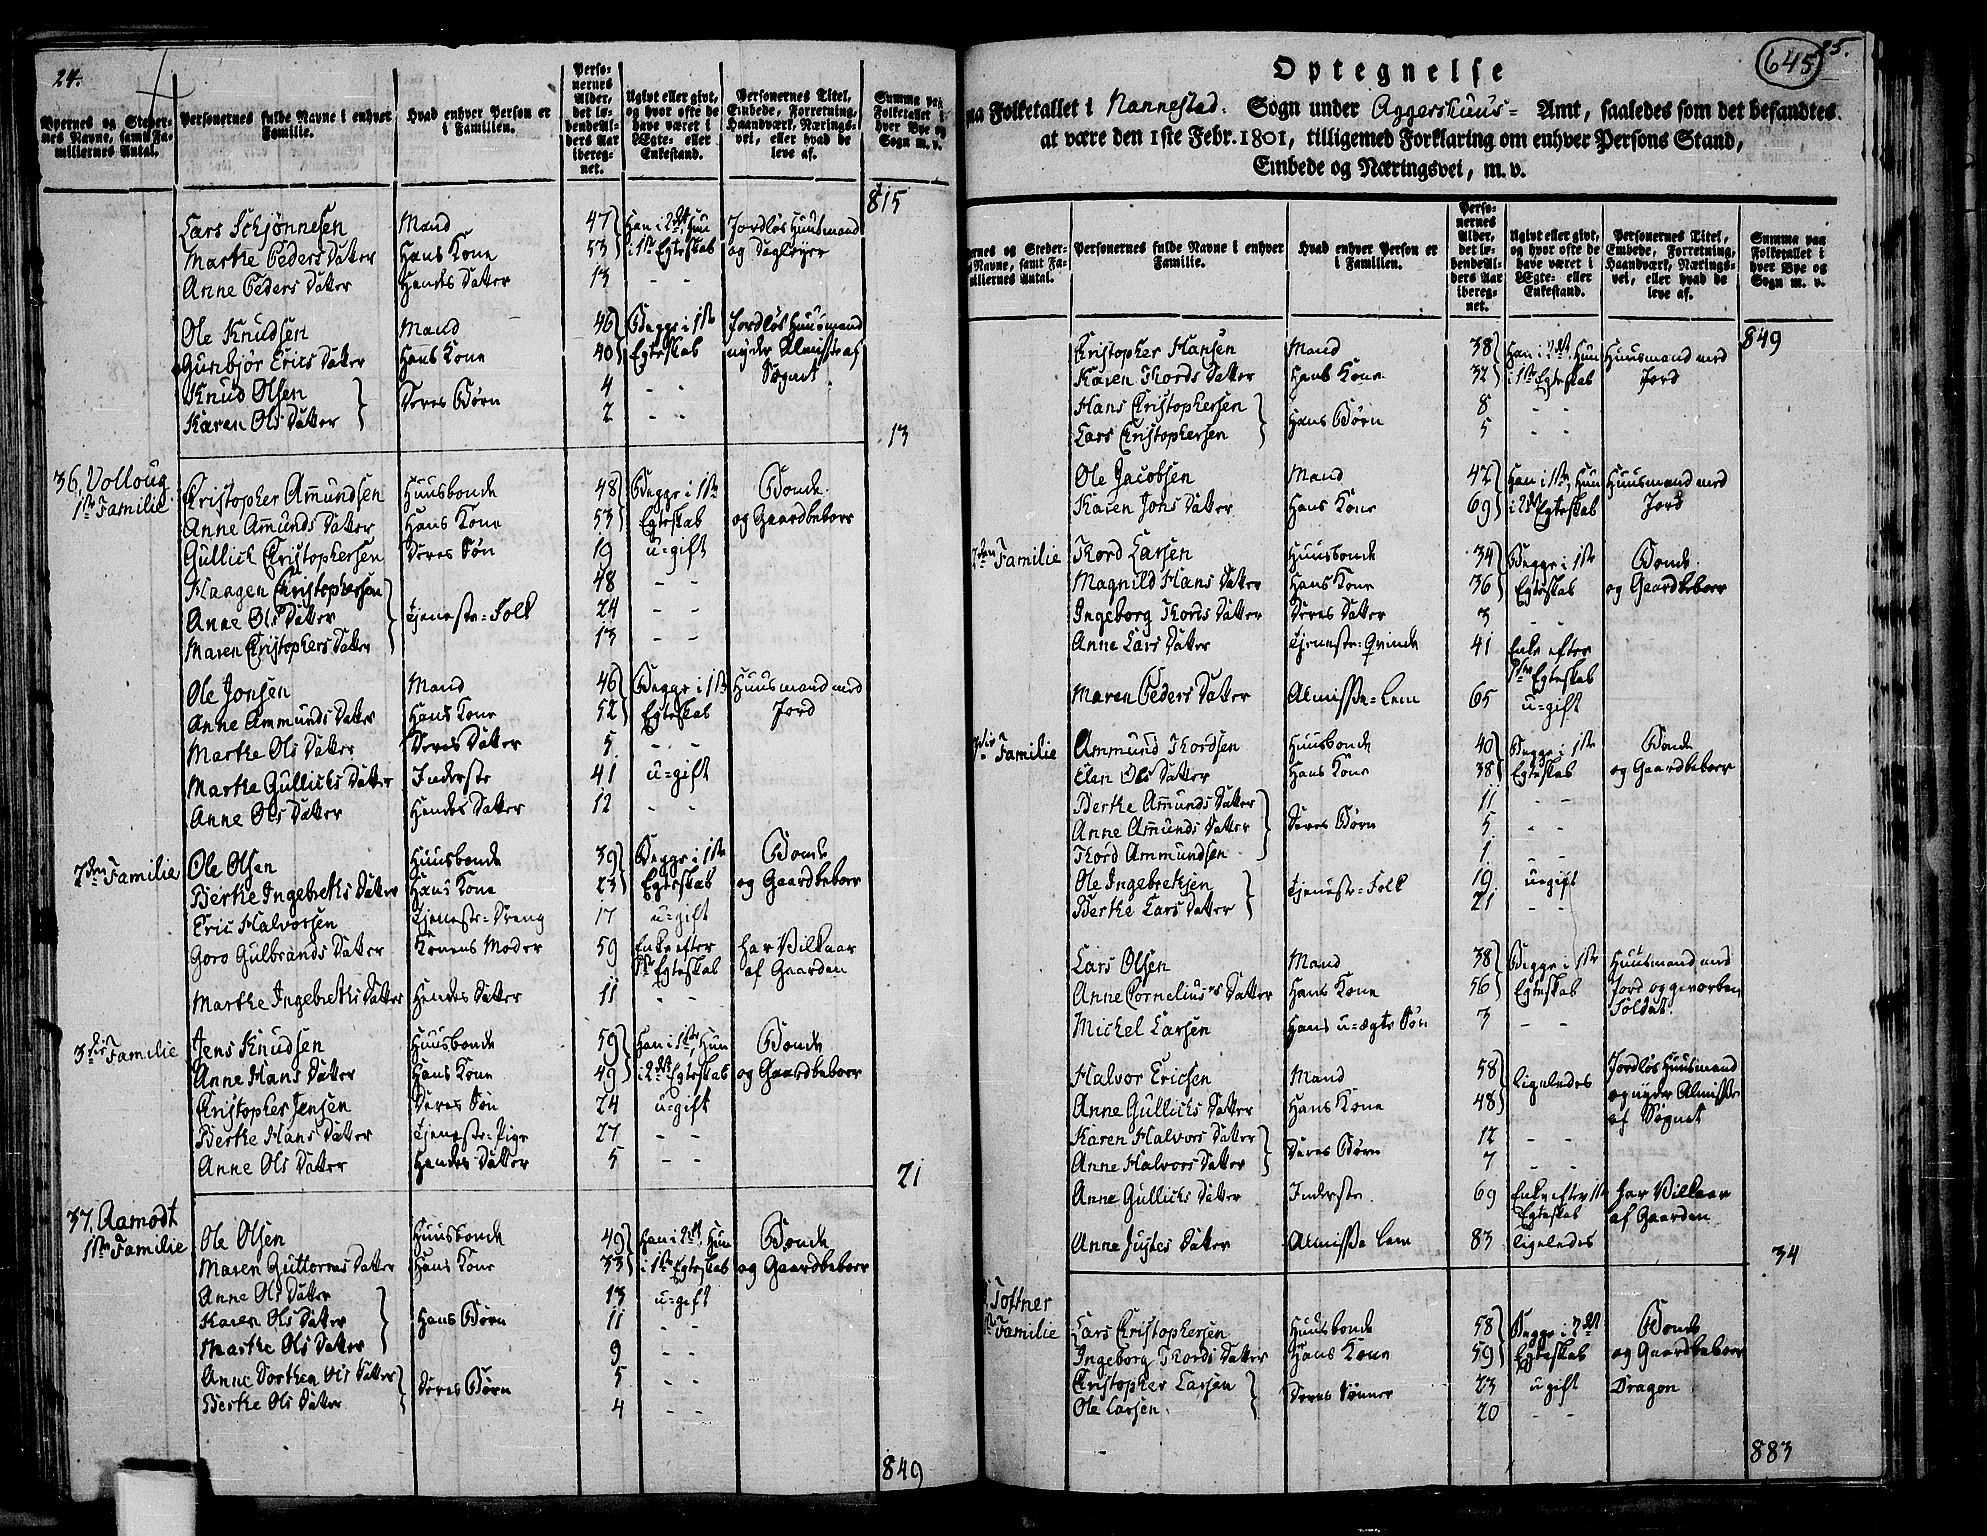 24.
Byernes og Steder-
nes Navne, samt Fa-
miliernes Antal.
Personernes fulde Navne i enhver
Familie.
Hvad enhver Person er
i Familien.
Perso-
nernes
Alder,
det lø-
bende Al-
ders Aar
ibereg-
net.
Ugivt eller givt,
og hvor ofte de
have været i
Ægte- eller
Enkestand.
Personernes Titel,
Embede, Forretning,
Haandværk, Nærings-
vei, eller hvad de
leve af.
Summa paa
Folketallet i
hver Bye og
Sogn m. v.
815
Lars Schjønnesen Mand 47 Han i 2det, Hun Jordløs Huusmand
Marthe Peders Datter Hans Kone 53 i 1ste Egteskab og Dagleyer
Anne Peders Datter Hendes Datter 13 - -
Ole Knudsen Mand 46 Begge i 1ste Jordløs Huusmand
Gunbjør Erics Datter Hans Kone 40 Egteskab nyder Almisse af
Sognet
Knud Olsen 4 - -
Deres Børn
Karen Ols Datter 2 - -
13
36, Volloug
1ste Familie
Cristopher Amundsen Huusbonde 48 Begge i 1ste Bonde
Anne Amunds Datter Hans Kone 53 Egteskab og Gaardbeboer
Gullich Cristophersen Deres Søn 19 u=gift
Haagen Cristophersen 48 - -
Anne Ols Datter Tjeneste=Folk 24 - -
Maren Cristophers Datter 13 - -
Ole Jonsen Mand 46 Begge i 1ste Huusmand med
Anne Ammunds Datter Hans Kone 52 Egteskab Jord
Marthe Ols Datter Deres Datter 5 - -
Marthe Gullichs Datter Inderste 41 u=gift
Anne Ols Datter Hendes Datter 12 - -
2den Familie Ole Olsen Huusbonde 39 Begge i 1ste Bonde
Berthe Ingebreths Datter Hans Kone 23 Egteskab og Gaardbeboer
Eric Halvorsen Tjeneste=Dreng 17 u=gift
Goro Gulbrands Datter Konens Moder 59 Enke efter har Vilkaar
1ste Egteskab af Gaarden
Marthe Ingebreths Datter Hendes Datter 11 - -
3die Familie Jens Knudsen Huusbonde 59 Han i 1ste, Hun Bonde
Anne Hans Datter Hans Kone 49 i 2det Egteskab og Gaardbeboer
Cristopher Jensen Deres Søn 24 u=gift
Berthe Hans Datter Tjeneste=Pige 27 - -
Anne Ols Datter Hendes Datter 5 - -
21
37. Aamodt
1ste Familie
Ole Olsen Huusbonde 49 Han i 2det, Hun Bonde
Maren Guttorms Datter Hans Kone 33 i 1ste Egteskab og Gaardbeboer
Anne Ols Datter 13 u=gift
Karen Ols Datter Hans Børn 11 - -
Marthe Ols Datter 9 - -
Anne Dorthea Ols Datter 5 - -
Deres Børn
Berthe Ols Datter 4 - -
849
645
25.
Optegnelse
paa Folketallet i Nannestad Sogn under Aggershuus= Amt, saaledes som det befandtes
at være den 1ste Febr. 1801, tilligemed Forklaring om enhver Persons Stand,
Embede og Næringsvei, m. v.
ernes og Steder-
Navne, samt Fa-
miliernes Antal.
Personernes fulde Navne i enhver
Familie.
Hvad enhver Person er
i Familien.
Perso-
nernes
Alder,
det lø-
bende Al-
ders Aar
ibereg-
net.
Ugivt eller givt,
og hvor ofte de
have været i
Ægte- eller
Enkestand.
Personernes Titel,
Embede, Forretning,
Haandværk, Nærings-
vei, eller hvad de
leve af.
Summa paa
Folketallet i
hver Bye og
Sogn m. v.
849
Cristopher Hansen Mand 38 Han i 2det, Hun Huusmand med
Karen Thords Datter Hans Kone 32 i 1ste Egteskab Jord
Hans Cristophersen 8 - -
Hans Børn
Lars Cristophersen 5 - -
Ole Jacobsen Mand 42 Han i 1ste, Hun Huusmand med
Karen Jons Datter Hans Kone 69 i 2det Egteskab Jord
2den Familie Thord Larsen Huusbonde 34 Begge i 1ste Bonde
Magnild Hans Datter Hans Kone 36 Egteskab og Gaardbeboer
Ingeborg Thords Datter Deres Datter 3 - -
Anne Lars Datter Tjeneste=Qvinde 41 Enke efter
1ste Egteskab
Maren Peders Datter Almisse=Lem 65 u=gift
3die Familie Ammund Thordsen Huusbonde 40 Begge i 1ste Bonde
Elen Ols Datter Hans Kone 38 Egteskab og Gaardbeboer
Berthe Amunds Datter 11 - -
Anne Amunds Datter Deres Børn 5 - -
Thord Ammundsen 1 - -
Ole Ingebrethsen 19 u=gift
Tjeneste=Folk
Berthe Lars Datter 21 - -
Lars Olsen Mand 38 Begge i 1ste Huusmand med
Anne Cornelius's Datter Hans Kone 56 Egteskab Jord og gevorben
Michel Larsen Hans u=ægte Søn 3 - - Soldat.
Halvor Ericsen Mand 58 Jordløs Huusmand
ligeledes og nyder Almisse
Anne Gullichs Datter Hans Kone 48 af Sognet
Karen Halvors Datter 12 - -
Deres Børn
Anne Halvors Datter 7 - -
Anne Gullichs Datter Inderste 69 Enke efter 1ste har Vilkaar
Egteskab af Gaarden
Anne Justes Datter Almisse Lem 83 ligeledes
34
Toftner
Familie Lars Cristophersen Huusbonde 58 Begge i 2det Bonde
Ingeborg Thords Datter Hans Kone 59 Egteskab og Gaardbeboer
Cristopher Larsen 23 ugift Dragon
Deres Sønner
Ole Larsen 20 - -
883